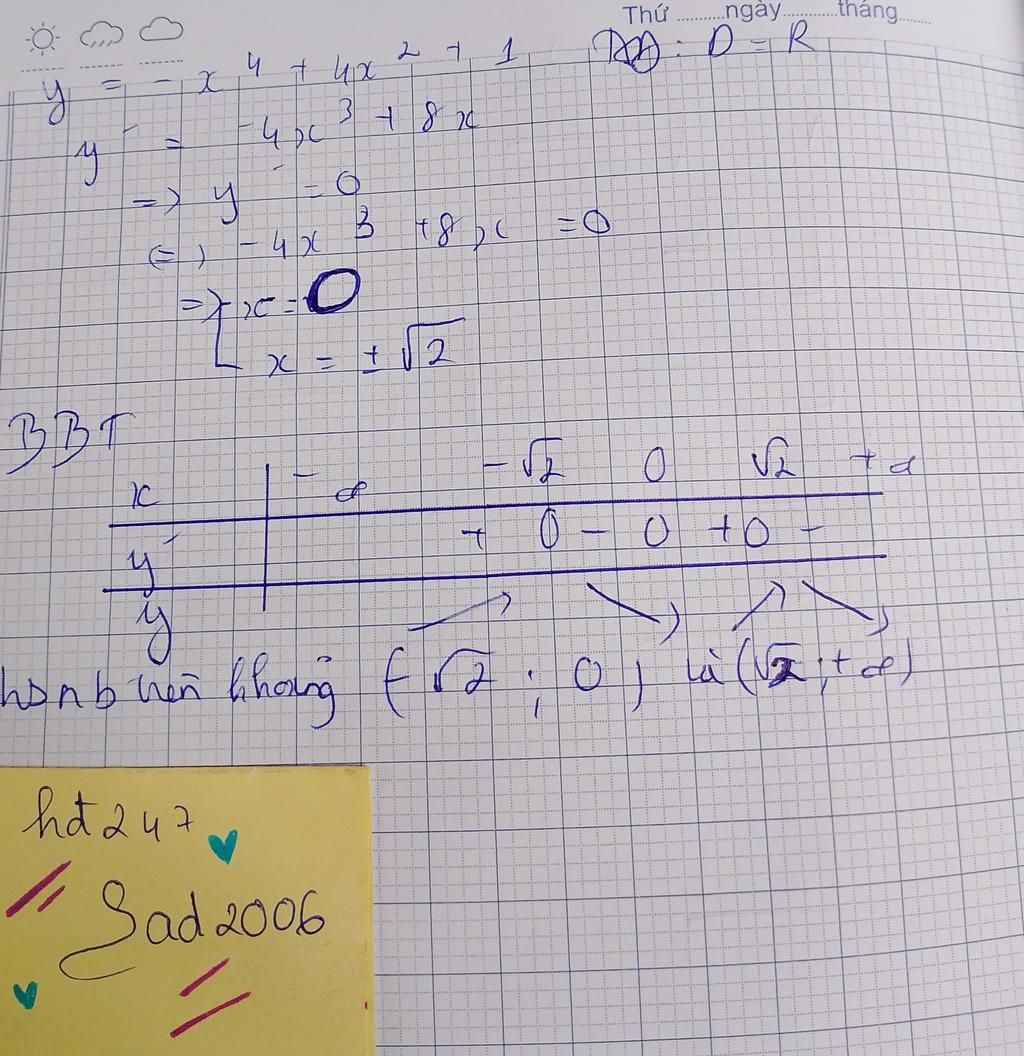 Thứ ......... ngày .......... tháng ......
y = - x^4 + 4x^2 + 1 D = R
y' = -4x^3 + 8x
=> y' = 0
<=> -4x^3 + 8x = 0
=> x = 0
x = ± √2
BBT
x -∞ -√2 0 √2 +∞
y' + 0 - 0 + 0 -
y ↗ ↘ ↗ ↘
hsnb trên khoảng (-√2 ; 0) và (√2 ; +∞)
hd247
Sad2006